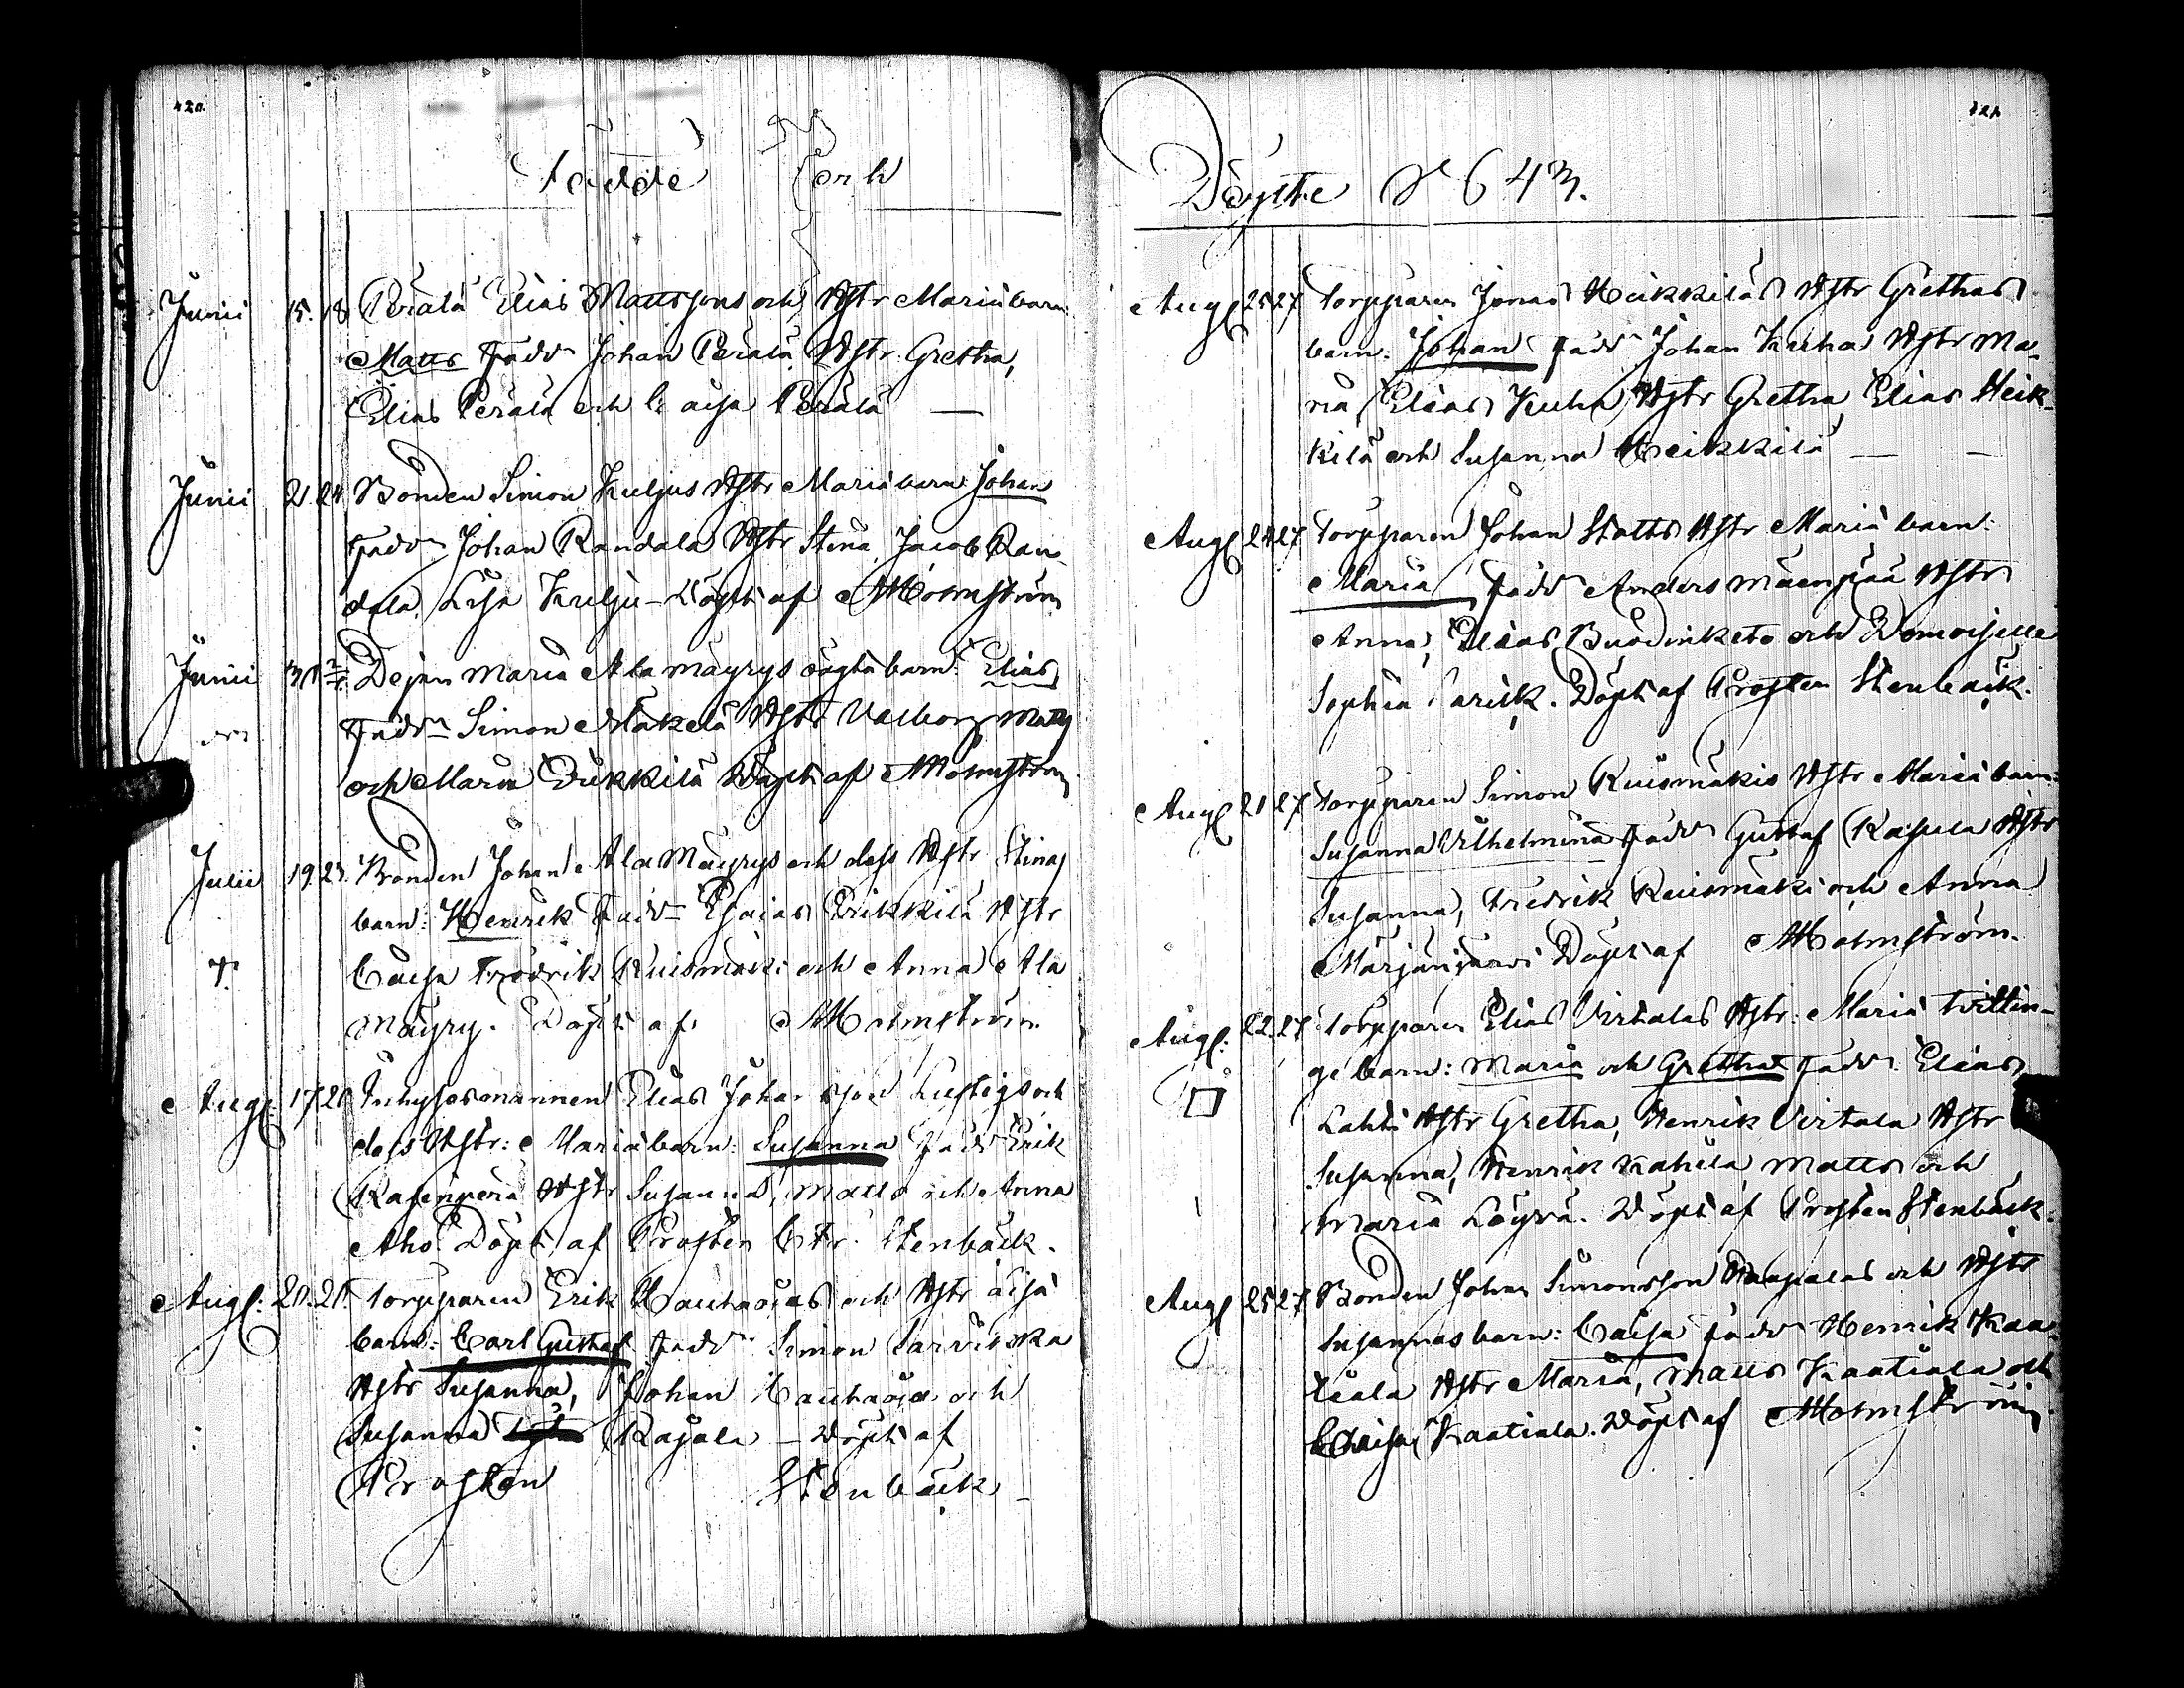 420.
Födde och
Junii 15. 18 Perälä Elias Mattssons och Hstr Mariä barn:
Matts Fadd. Johan Perälä Hstr Gretha,
Elias Perälä och Caisa Perälä —
Junii 21. 24. Bonden Simon Kuljus Hstr Mariä barn Johan
Fadd. Johan Randala Hstr Stina Jacob Ran-
dala, Lisa Kulju - Döpt af Malmström
Junii 30 Pejan Maria Ala Mäyrys oägta barn: Elias
Fadd. Simon Mäkelä Hstr Valborg Matts
och Maria Erikkilä Döpt af Malmström
Julii 19. 23. Bonden Johan Ala Mäyrys och dess Hstr Stinas
barn: Henrik Fadd. Esaias Erikkilä Hstr
Caisa Fredrik Ruismäki och Anna Ala
Mäyry. Döpt af Malmström
Aug: 17. 20 Inhysesmannen Elias Johansson Lustigs och
dess Hstr: Mariä barn: Susanna Fadd Erik
Kasinperä Hstr Susanna, Matts och Anna
Aho. Döpt af Prosten Stenbäck.
Aug: 20. 21. Torpparen Erik Hauhaojas och Hstr Caisä
barn: Carl Gustaf Fadd Simon Sarviska
Hstr Susanna, Johan Hauhaoja och
Susanna Rajala — Döpt af
Prosten Stenbäck —
421.
Döpte År 643.
Aug 25 27 Torpparen Jonas Heikkiläs Hstr Grethas
barn: Johan Fadd Johan Kuha Hstr Ma-
ria, Elias Kuha, Hstr Gretha Elias Heik-
kilä och Susanna Heikkilä — —
Aug 24 27 Torpparen Johan Hstr Mariä barn:
Maria Fadd Anders Mäenpää Hstr
Anna, Elias och Demoiselle
Sophia. Döpt af Prosten Stenbäck.
Aug 21 27 Torpparen Simon Ruismäkis Hstr Mariä barn:
Susanna Vilhelmina Fadd Gustaf Rajala Hstr
Susanna, Fredrik Ruismäki och Anna
Marjanjärvi Döpt af Malmström.
Aug: 22. 27 Torpparen Elias Virtalas Hstr: Mariä tvillin-
ge barn: Maria och Gretha Fadd Elias
Lahti Hstr Gretha, Henrik Virtala Hstr
Susanna, Henrik Kahila Matts och
Maria Löyvä. Döpt af Prosten Stenbäck.
Aug 25 27 Bonden Johan Simonsson Haapalas och Hstr
Susannas barn: Caisa Fadd Henrik Kaa-
tiala Hstr Maria, Matts Kaatiala och
Caisa Kaatiala. Döpt af Malmström